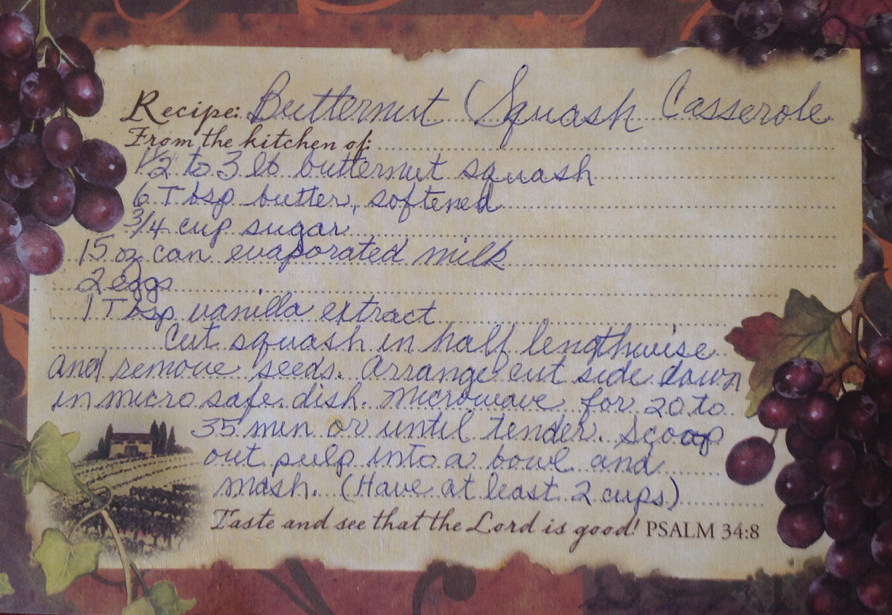 Recipe: Butternut Squash Casserole
From the kitchen of:
1½ to 3 lb butternut squash
6 Tbsp butter, softened
3/4 cup sugar
15 oz can evaporated milk
2 eggs
1 Tbsp vanilla extract
Cut squash in half lengthwise
and remove seeds. Arrange cut side down
in micro safe dish. Microwave for 20 to
35 min or until tender. Scoop
out pulp into a bowl and
mash. (Have at least 2 cups)
Taste and see that the Lord is good! PSALM 34:8